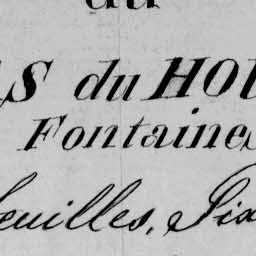 du
S du HOU
Fontaines
euilles, Six